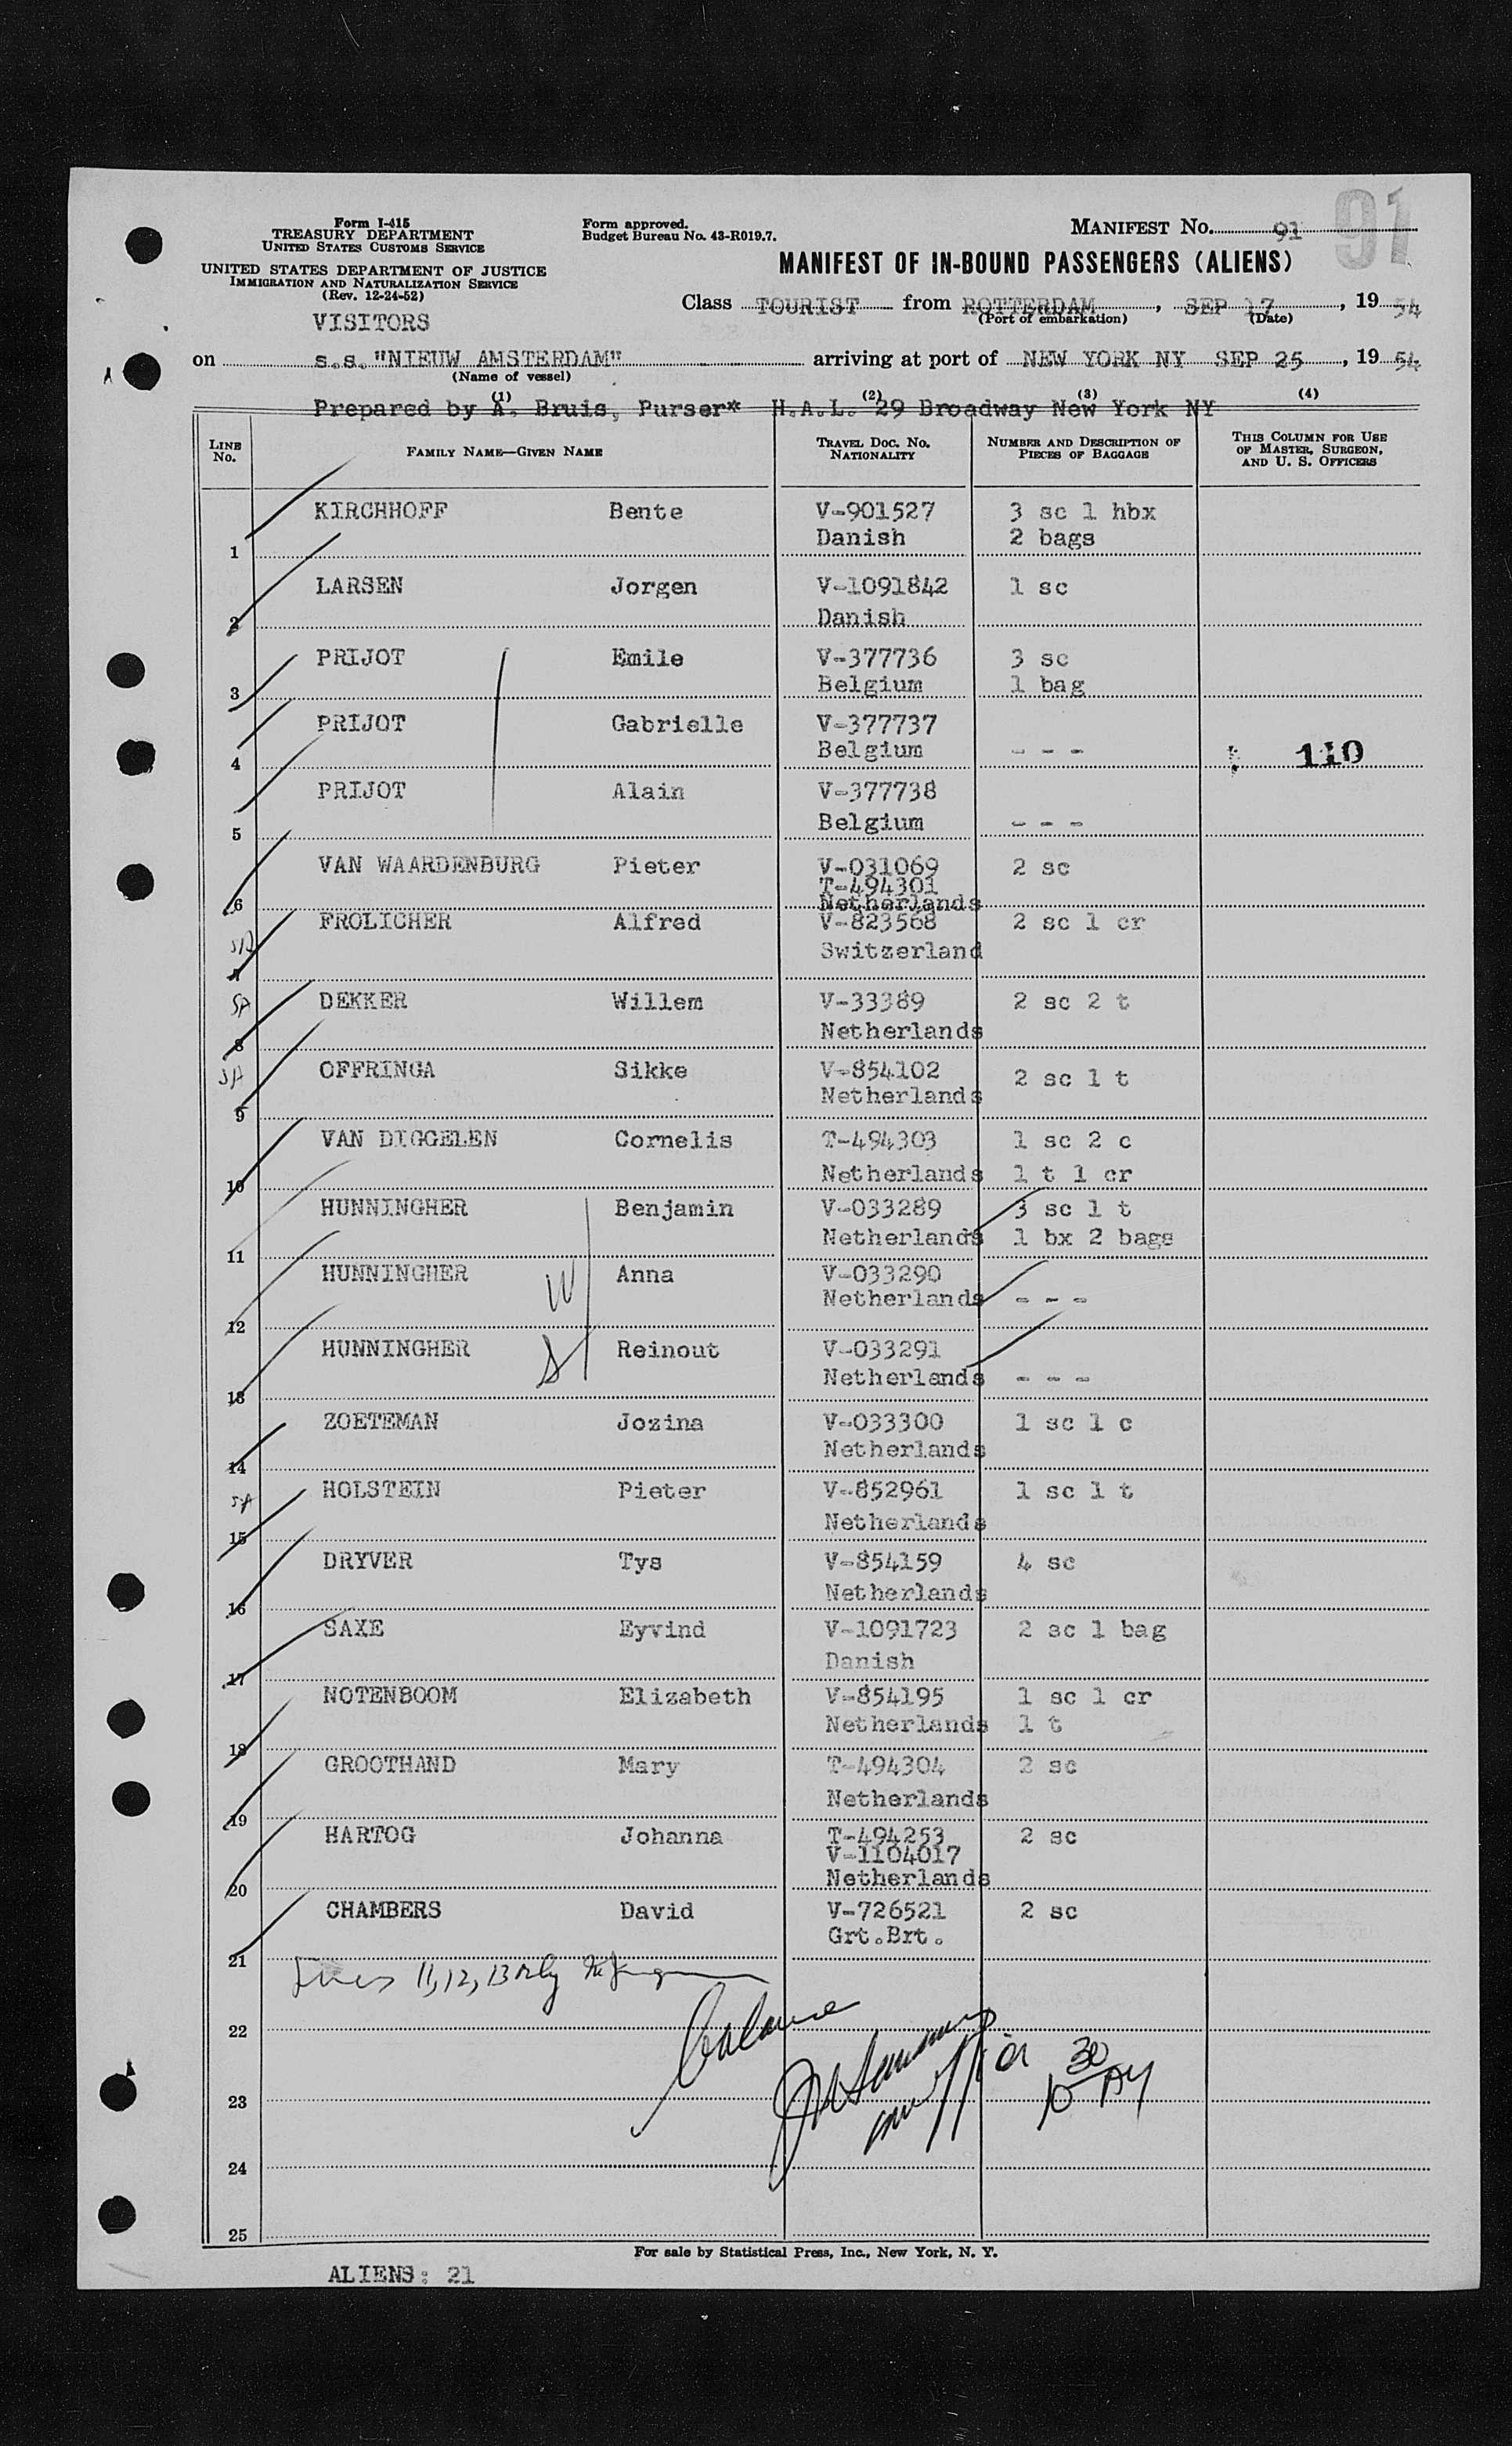 Form I-415
TREASURY DEPARTMENT
UNITED STATES CUSTOMS SERVICE
UNITED STATES DEPARTMENT OF JUSTICE
IMMIGRATION AND NATURALIZATION SERVICE
(Rev. 12-24-52)
Form approved.
Budget Bureau No. 43-R019.7.
MANIFEST No. 91
91
MANIFEST OF IN-BOUND PASSENGERS (ALIENS)
Class TOURIST from ROTTERDAM, SEP 17, 19 54
(Port of embarkation) (Date)
VISITORS
on s.s. "NIEUW AMSTERDAM" arriving at port of NEW YORK NY SEP 25, 19 54
(Name of vessel)
(1) (2) (3) (4)
Prepared by A. Bruis, Purser* H.A.L. 29 Broadway New York NY
LINE No. FAMILY NAME—GIVEN NAME TRAVEL DOC. No. NATIONALITY NUMBER AND DESCRIPTION OF PIECES OF BAGGAGE THIS COLUMN FOR USE OF MASTER, SURGEON, AND U. S. OFFICERS
KIRCHHOFF Bente V-901527 3 sc 1 hbx
1 Danish 2 bags
LARSEN Jorgen V-1091842 1 sc
2 Danish
PRIJOT Emile V-377736 3 sc
3 Belgium 1 bag
PRIJOT Gabrielle V-377737
4 Belgium - - - 110
PRIJOT Alain V-377738
5 Belgium - - -
VAN WAARDENBURG Pieter V-031069 2 sc
T-494301
6 Netherlands
FROLICHER Alfred V-823568 2 sc 1 cr
7 Switzerland
SA DEKKER Willem V-33389 2 sc 2 t
8 Netherlands
SA OFFRINGA Sikke V-854102 2 sc 1 t
9 Netherlands
VAN DIGGELEN Cornelis T-494303 1 sc 2 c
10 Netherlands 1 t 1 cr
HUNNINGHER Benjamin V-033289 3 sc 1 t
11 Netherlands 1 bx 2 bags
HUNNINGHER W Anna V-033290
12 Netherlands - - -
HUNNINGHER S Reinout V-033291
13 Netherlands - - -
ZOETEMAN Jozina V-033300 1 sc 1 c
14 Netherlands
SA HOLSTEIN Pieter V-852961 1 sc 1 t
15 Netherlands
DRYVER Tys V-854159 4 sc
16 Netherlands
SAXE Eyvind V-1091723 2 sc 1 bag
17 Danish
NOTENBOOM Elizabeth V-854195 1 sc 1 cr
18 Netherlands 1 t
GROOTHAND Mary T-494304 2 sc
19 Netherlands
HARTOG Johanna T-494253 2 sc
V-1104017
20 Netherlands
CHAMBERS David V-726521 2 sc
21 Grt.Brt.
Lines 11, 12, 13 only
22 balance
23 10 30 AM
24
25
For sale by Statistical Press, Inc., New York, N. Y.
ALIENS: 21